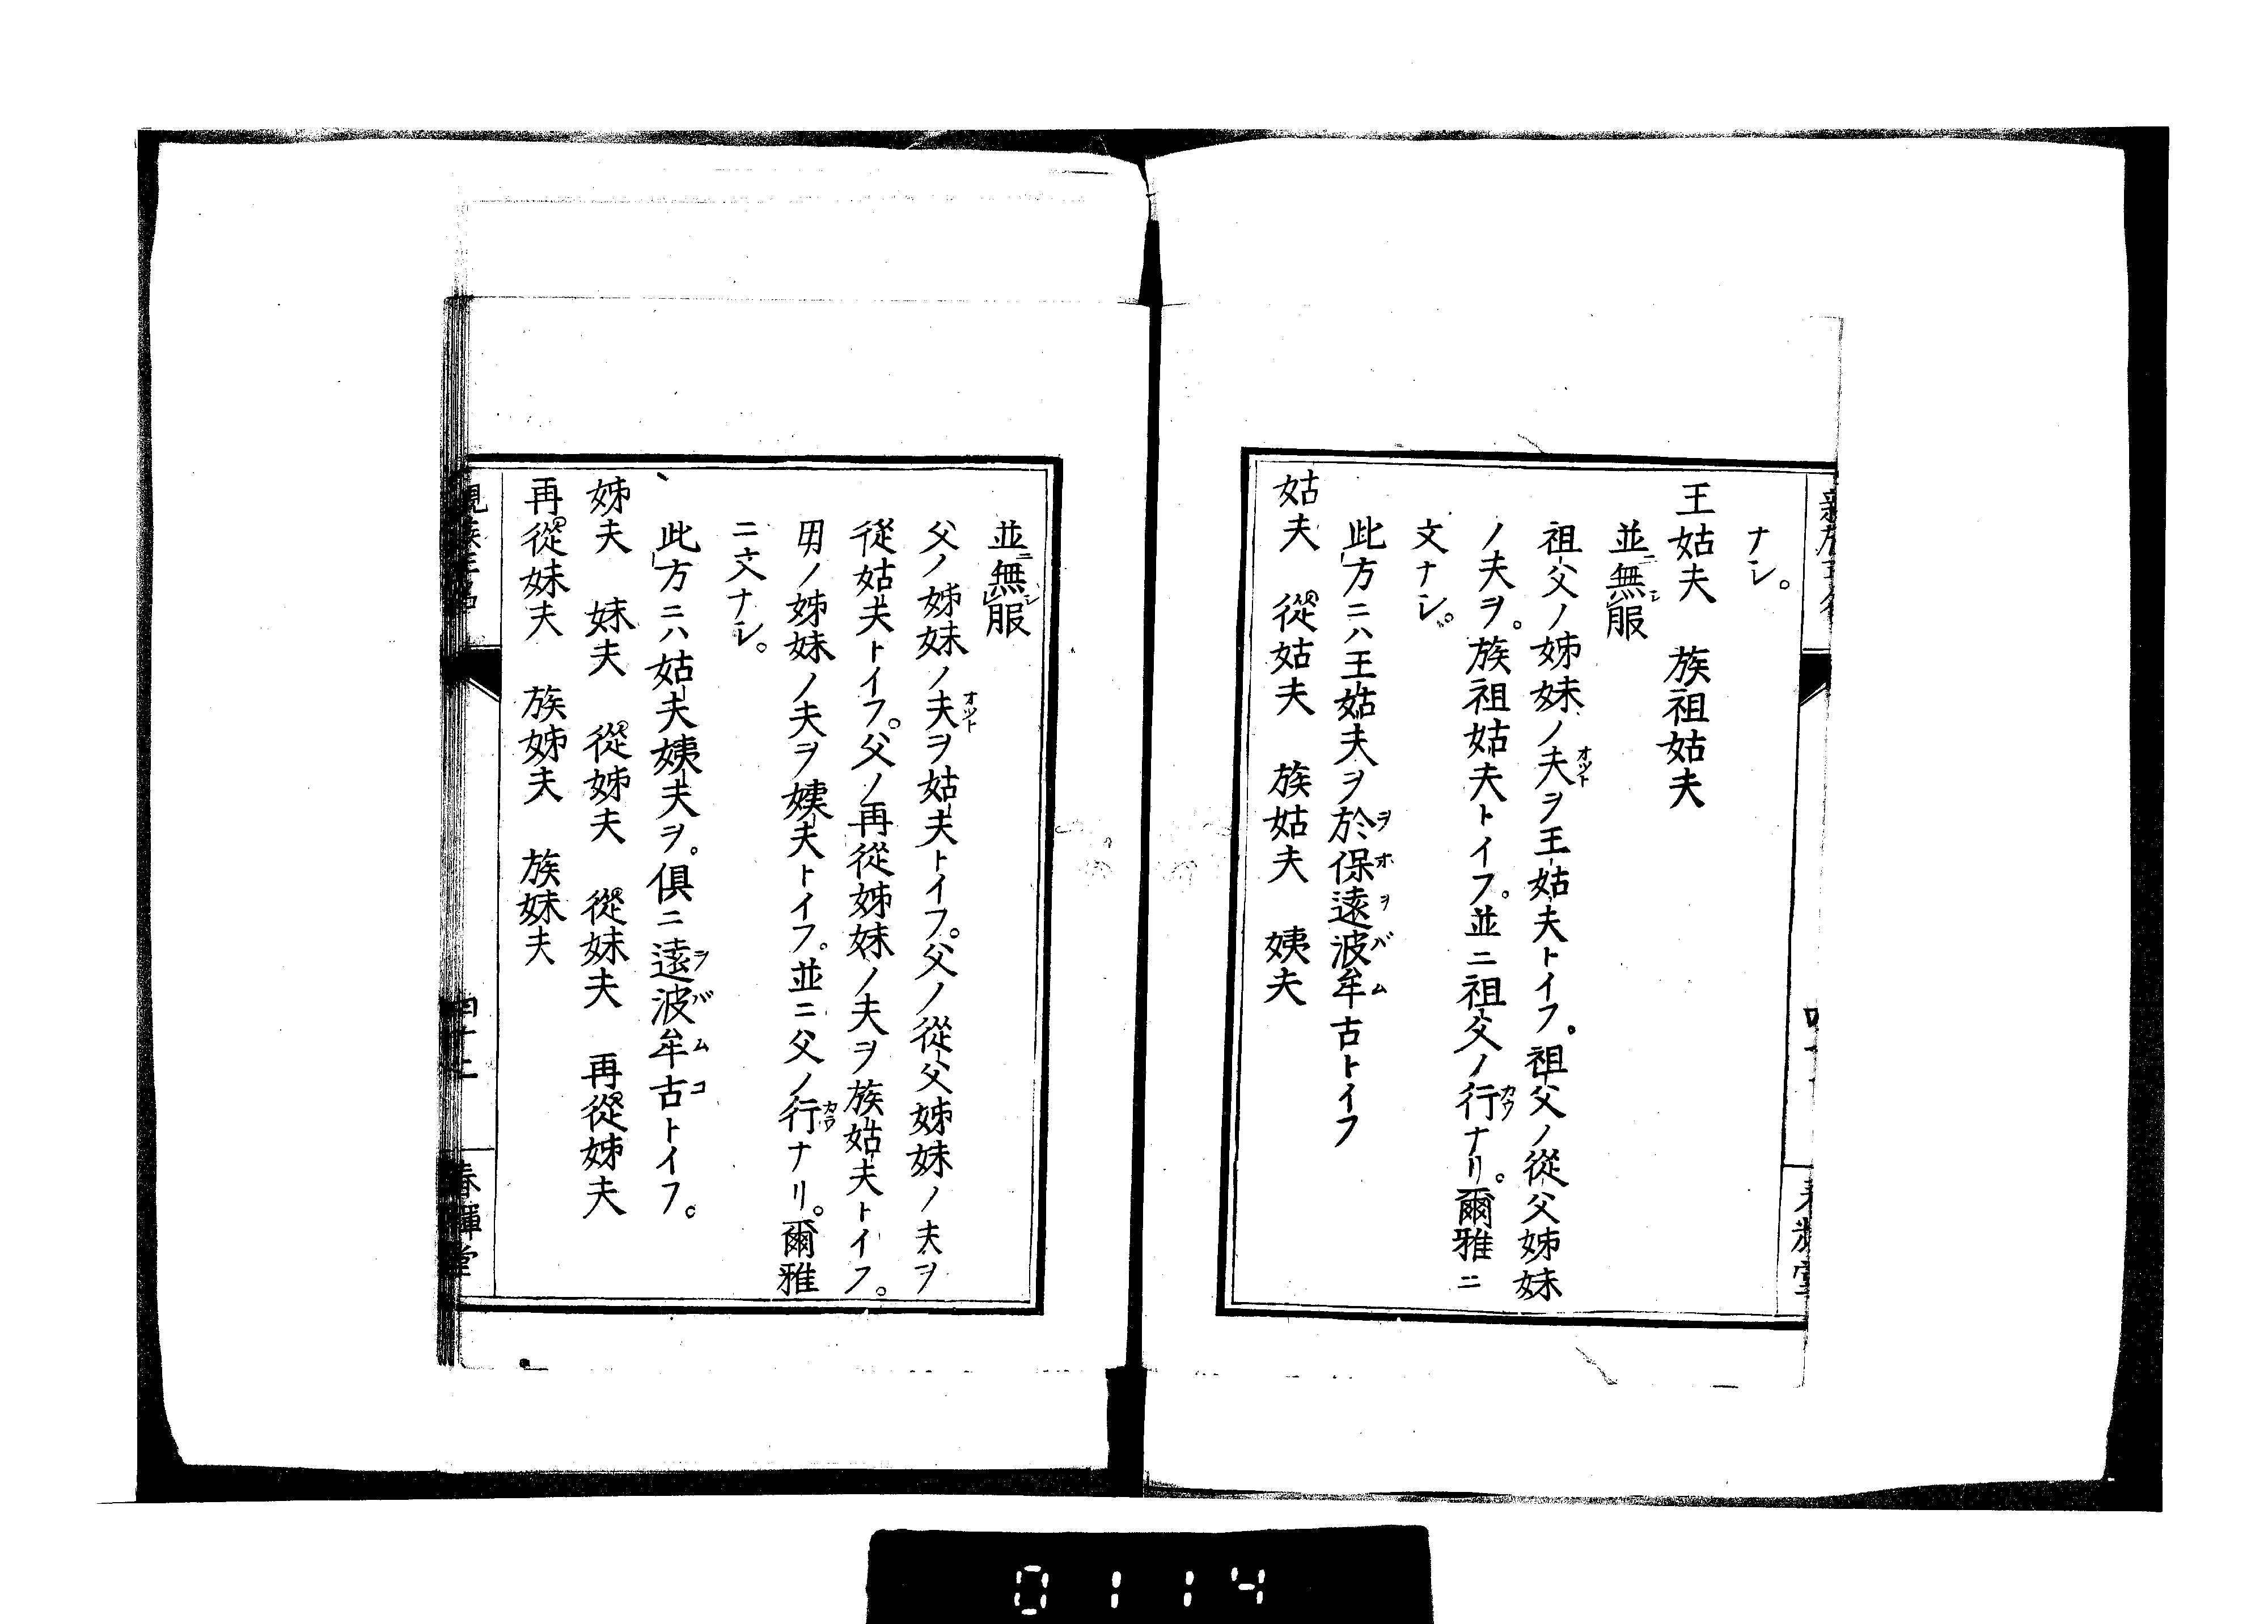 ナシ。
王姑夫　族祖姑夫
並ニ無シ服
祖父ノ姊妹ノ夫ヲ王姑夫トイフ。祖父ノ從父姊妹
ノ夫ヲ。族祖姑夫トイフ。並ニ祖父ノ行ナリ。爾雅ニ
文ナシ。
此方ニハ王姑夫ヲ於保遠波牟古トイフ
姑夫　從姑夫　族姑夫　姨夫
並ニ無シ服
父ノ姊妹ノ夫ヲ姑夫トイフ。父ノ從父姊妹ノ夫ヲ
從姑夫トイフ。父ノ再從姊妹ノ夫ヲ族姑夫トイフ。
男ノ姊妹ノ夫ヲ姨夫トイフ。並ニ父ノ行ナリ。爾雅
ニ文ナシ。
此方ニハ姑夫姨夫ヲ。俱ニ遠波牟古トイフ。
姊夫　妹夫　從姊夫　從妹夫　再從姊夫
再從妹夫　族姊夫　族妹夫
春輝堂
0114